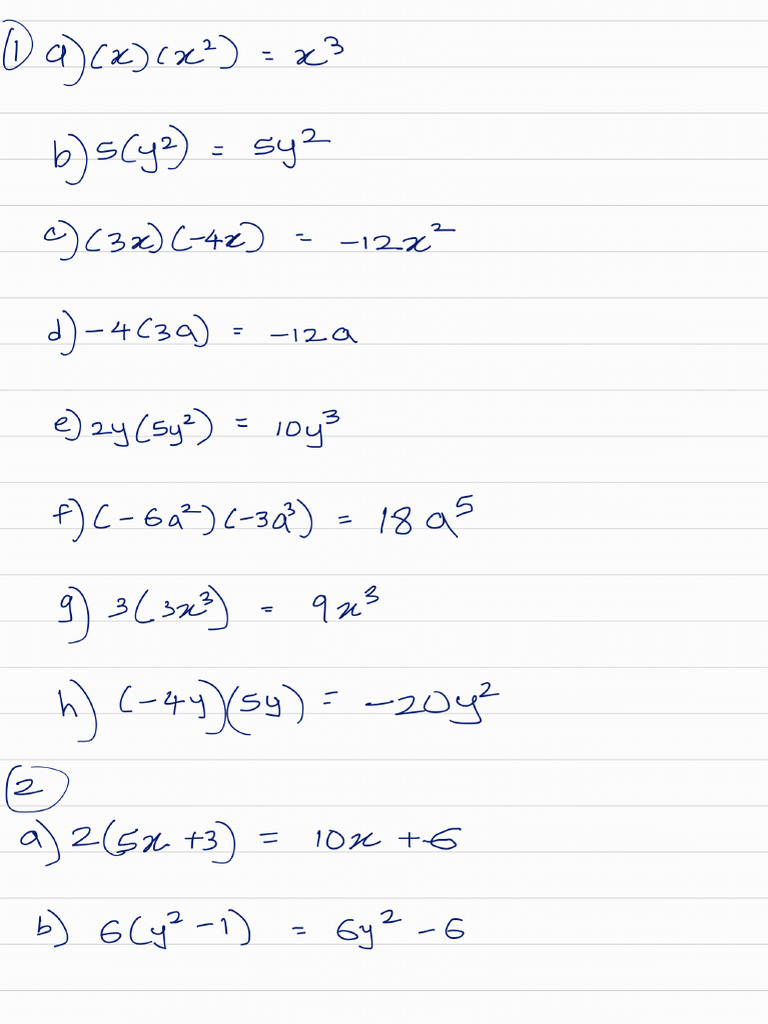 ① a) (x)(x²) = x³
b) 5(y²) = 5y²
c) (3x)(-4x) = -12x²
d) -4(3a) = -12a
e) 2y(5y²) = 10y³
f) (-6a²)(-3a³) = 18a⁵
g) 3(3x³) = 9x³
h) (-4y)(5y) = -20y²
②
a) 2(5x+3) = 10x+6
b) 6(y²-1) = 6y²-6